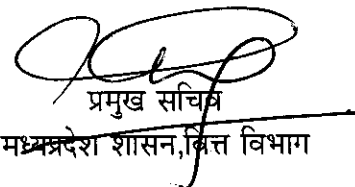 प्रमुख सचिव
मध्यप्रदेश शासन,वित्त विभाग